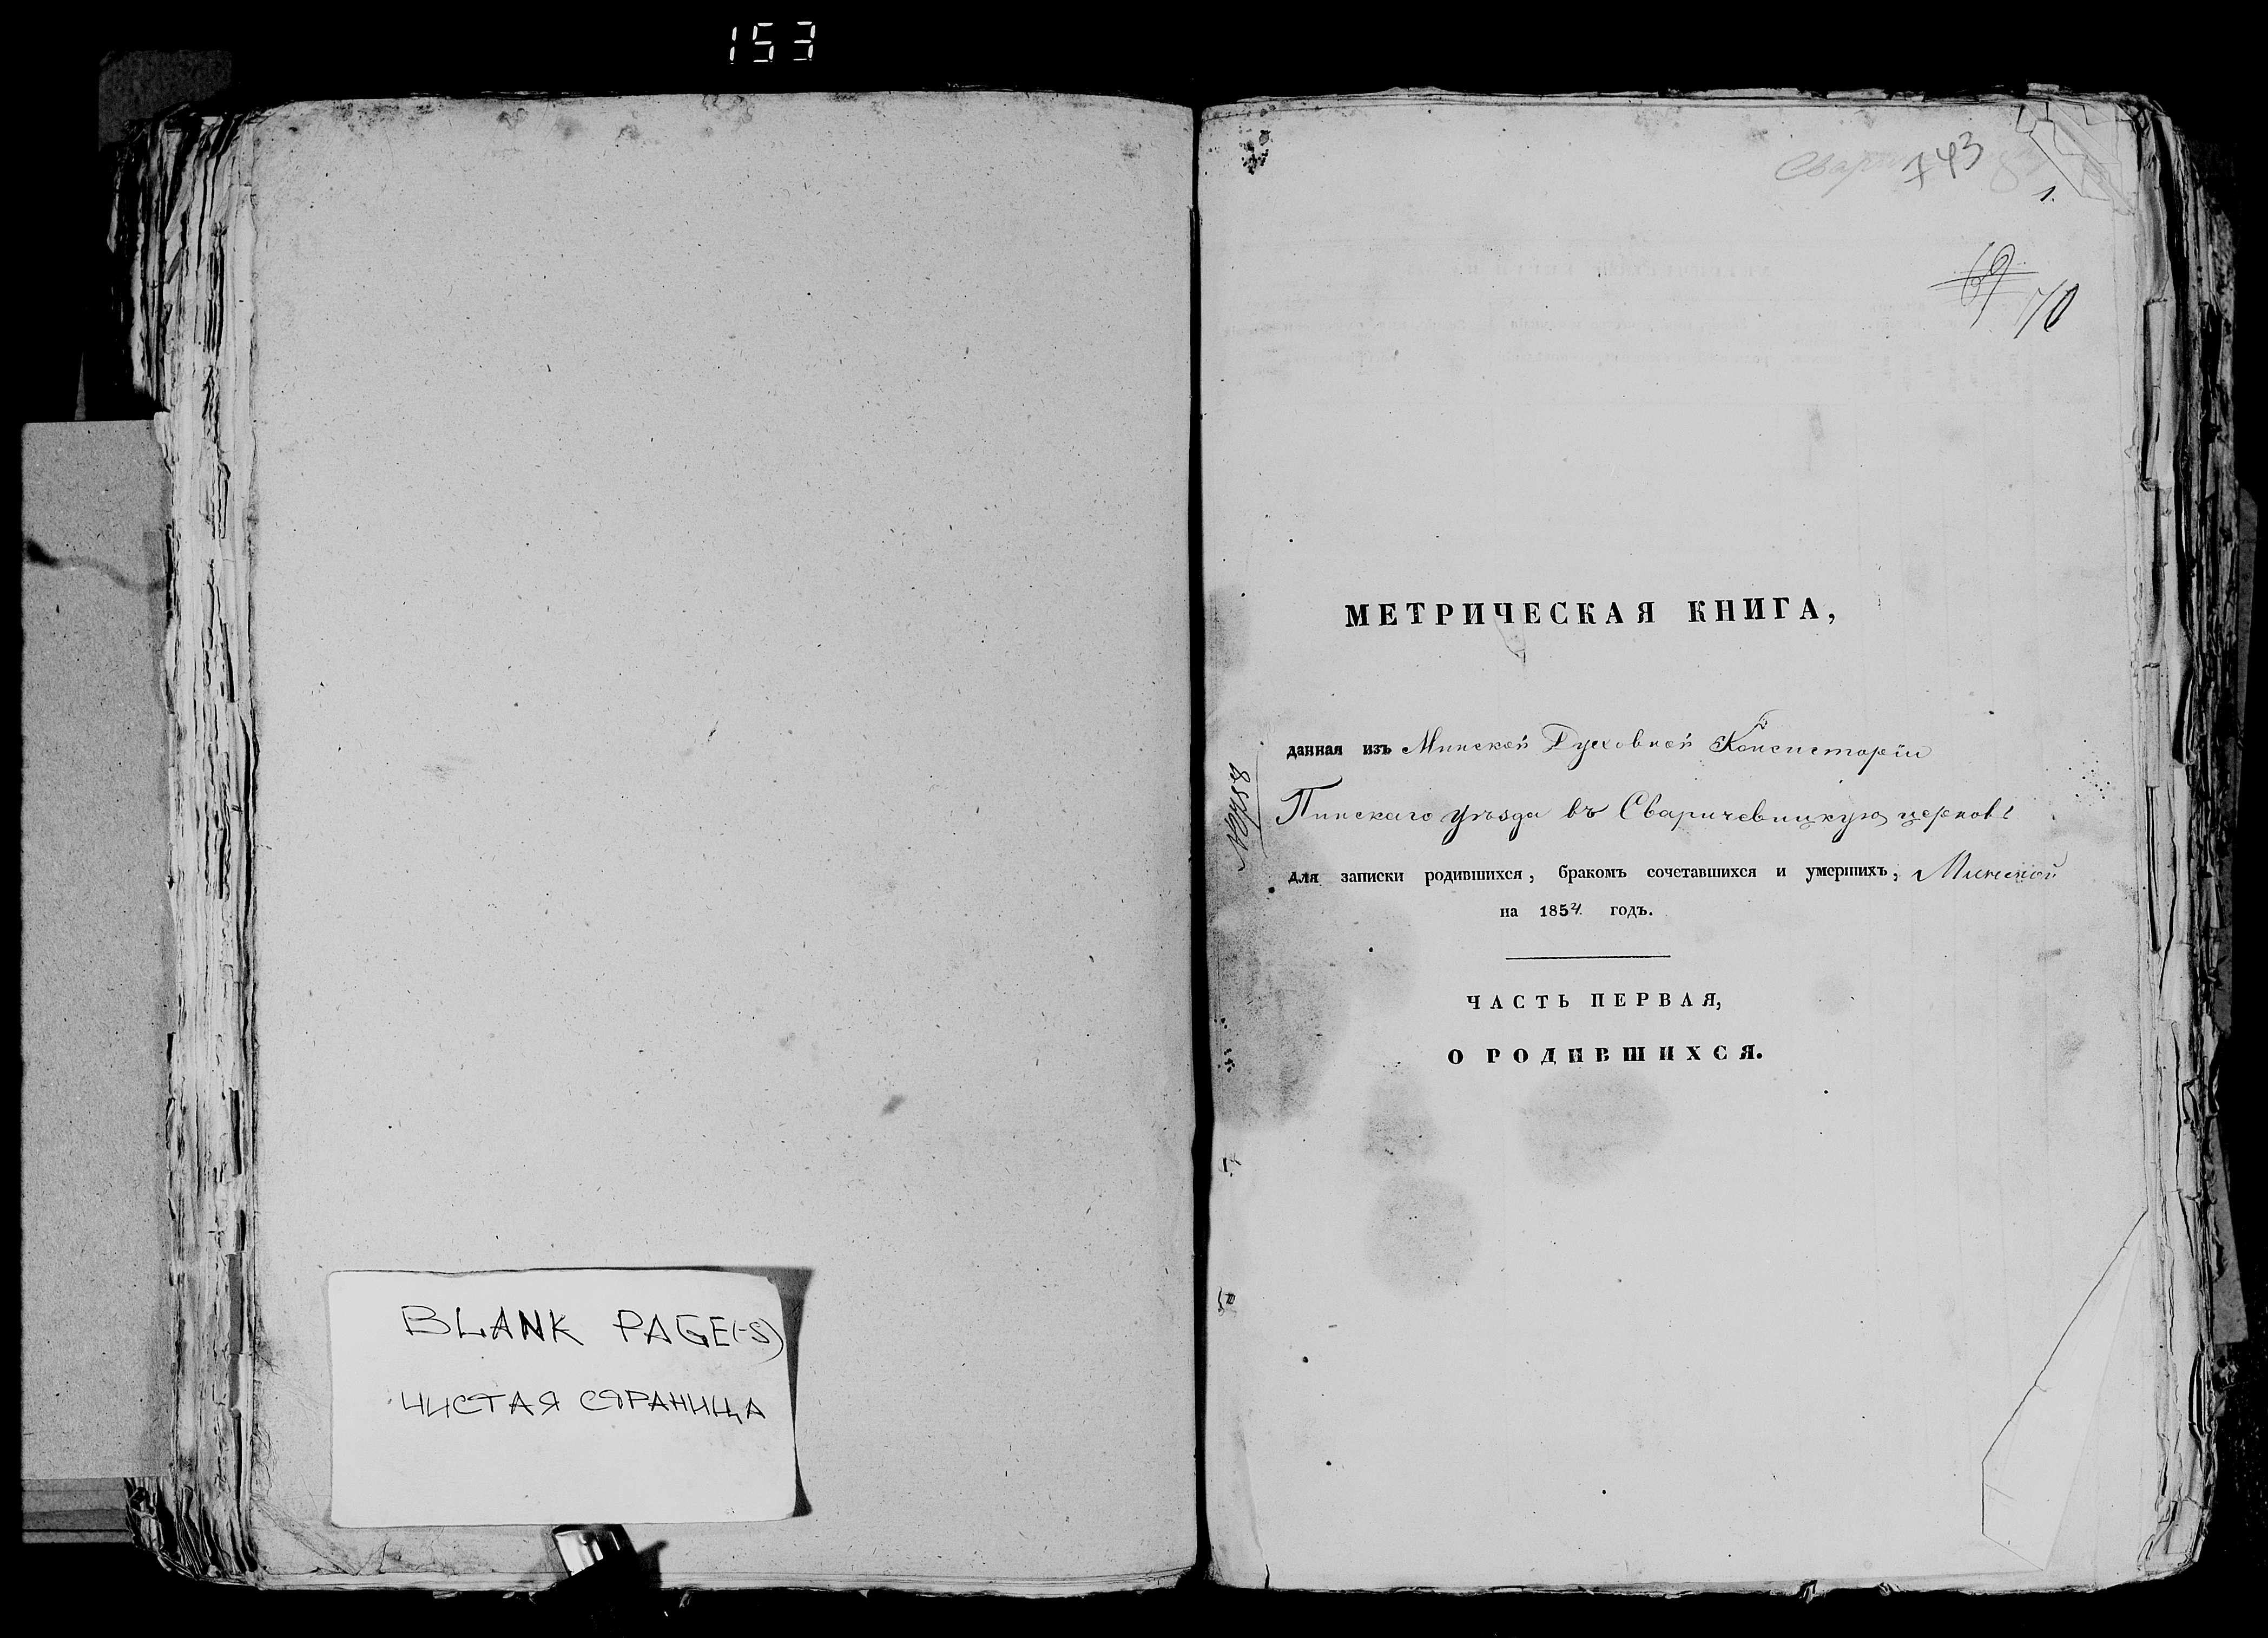 153
BLANK PAGE(-S)
ЧИСТАЯ СТРАНИЦА
743
1.
69 70
МЕТРИЧЕСКАЯ КНИГА,
данная изъ Минской Духовной Консисторіи
Пинскаго уѣзда въ Сваричевицкую церковь
для записки родившихся, бракомъ сочетавшихся и умершихъ,
на 1854 годъ.
ЧАСТЬ ПЕРВАЯ,
О РОДИВШИХСЯ.